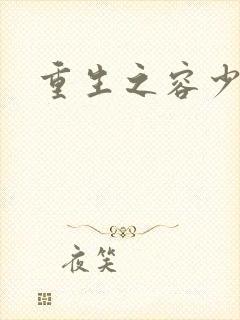 重生之容少
夜笑